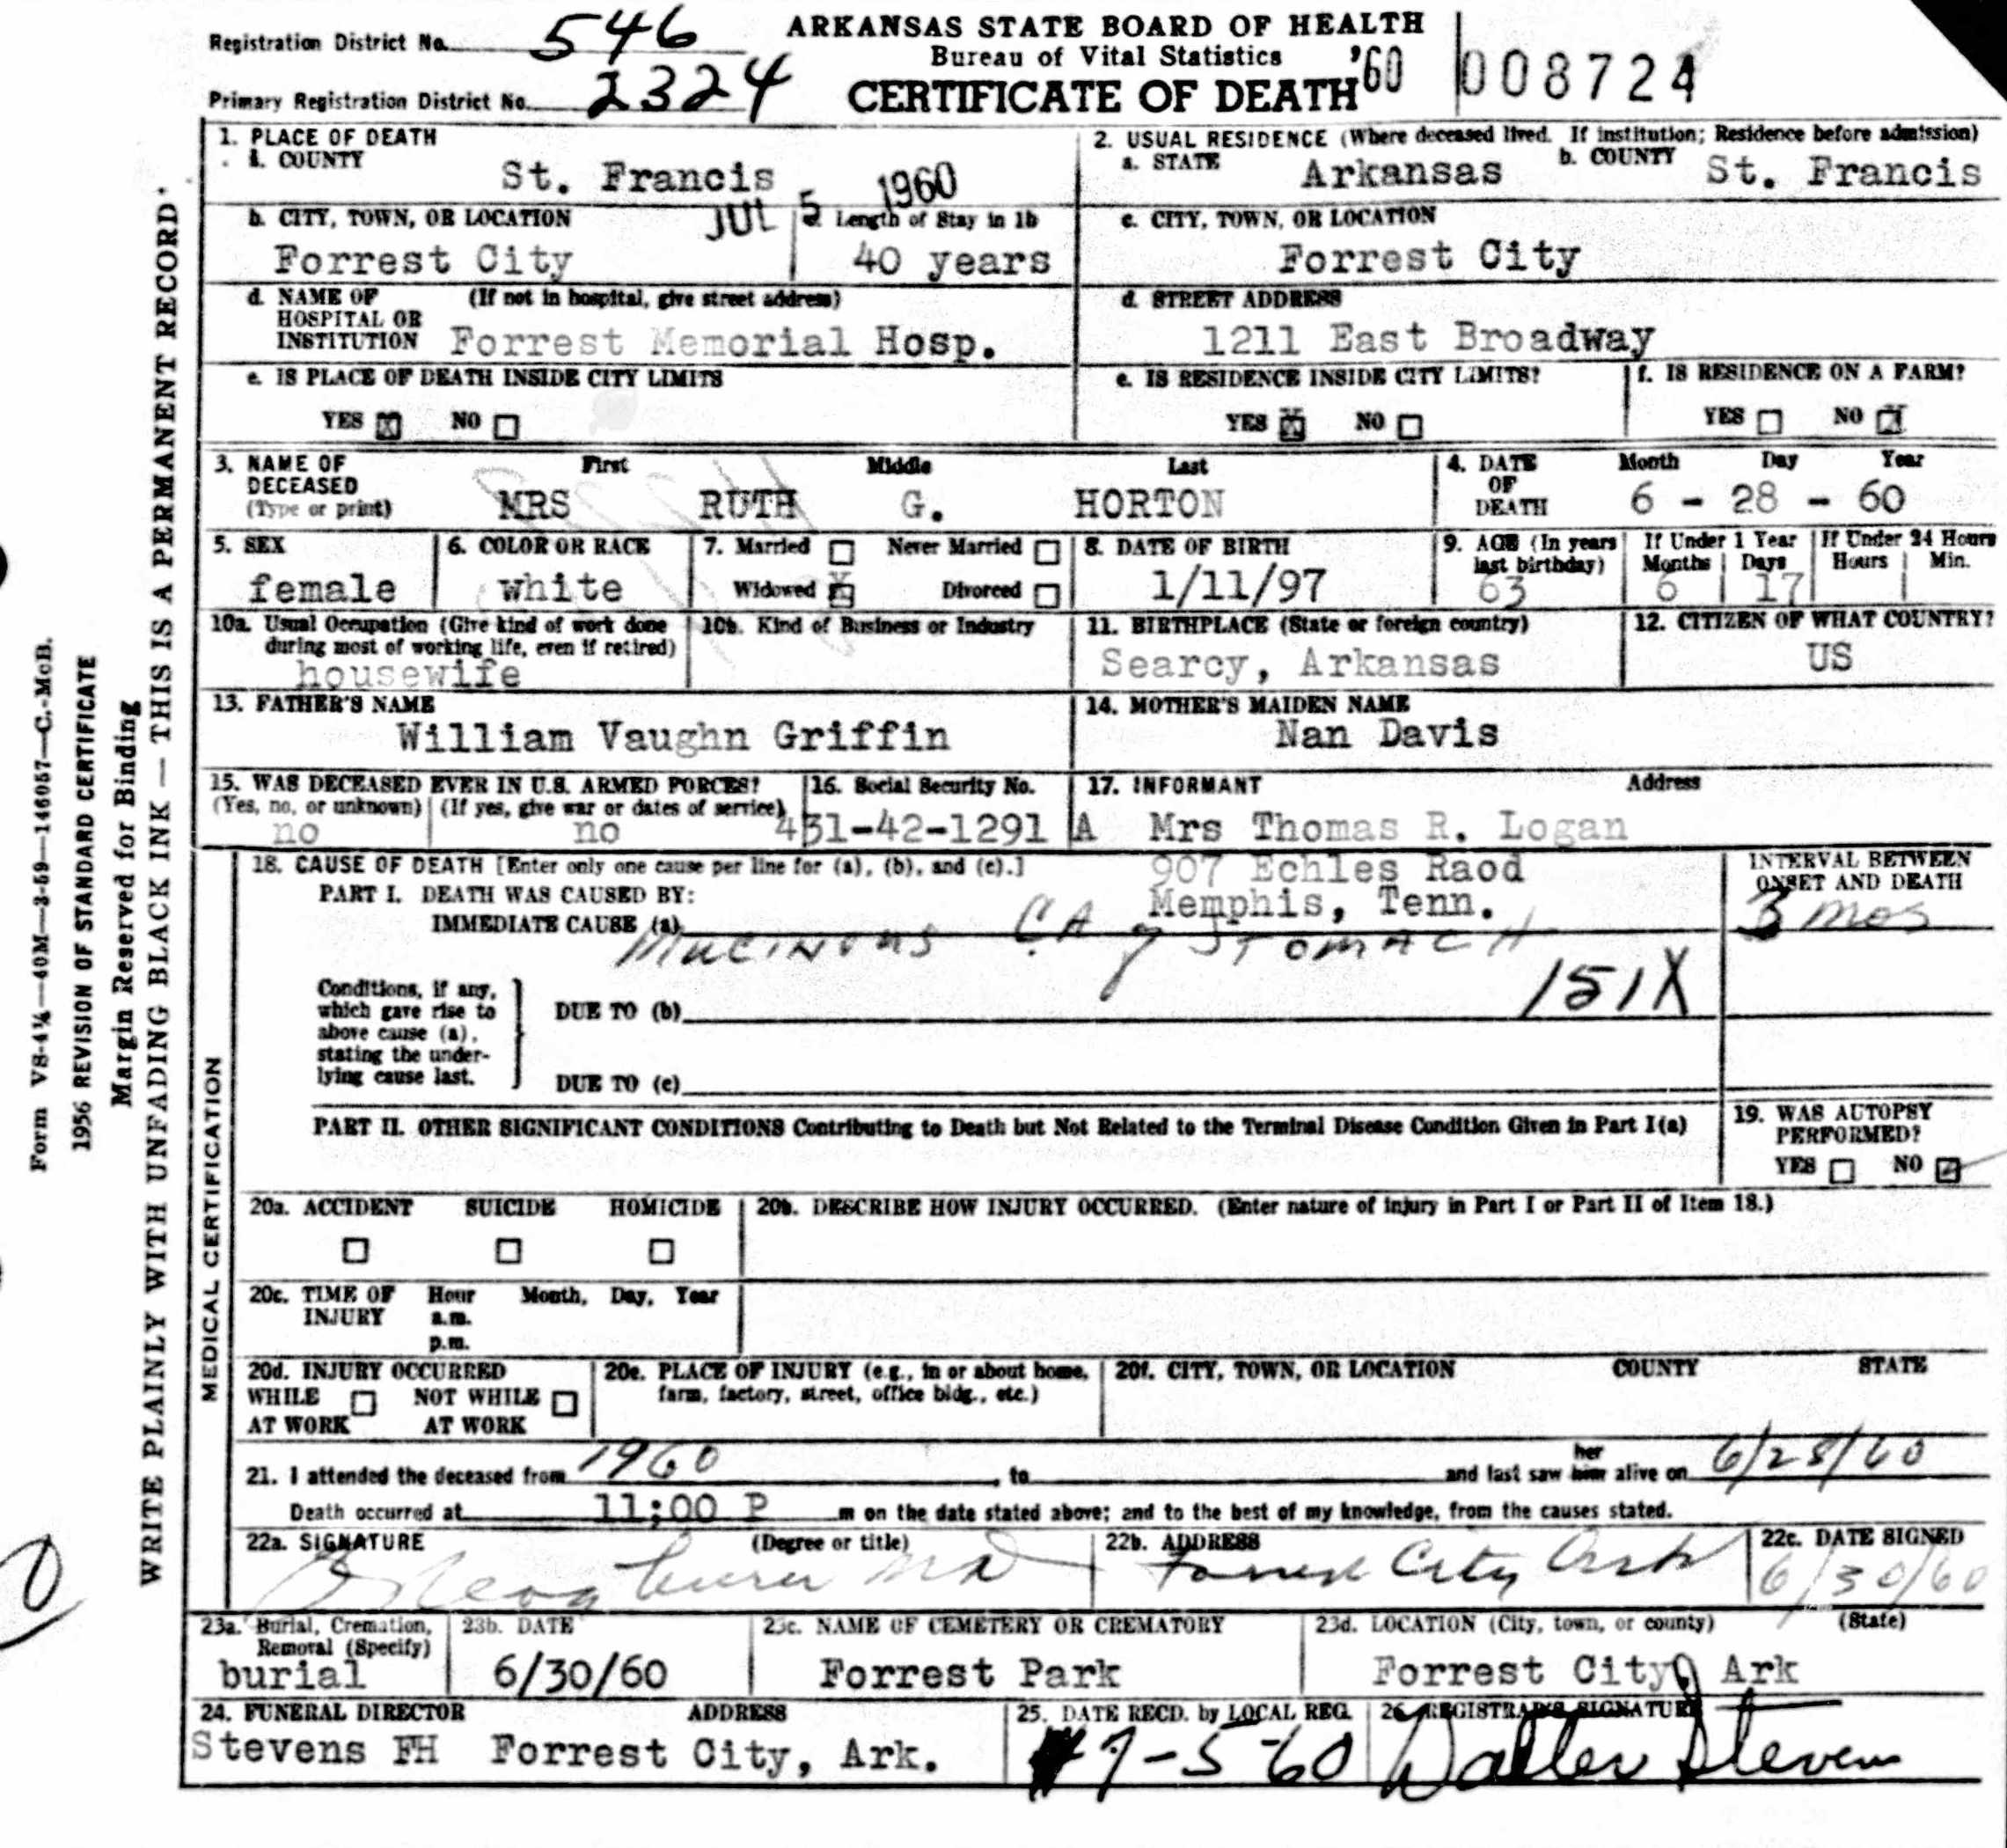 Registration District No. 546
ARKANSAS STATE BOARD OF HEALTH
Bureau of Vital Statistics
Primary Registration District No. 2324
CERTIFICATE OF DEATH '60 008724
1. PLACE OF DEATH
a. COUNTY St. Francis
2. USUAL RESIDENCE (Where deceased lived. If institution; Residence before admission)
a. STATE Arkansas b. COUNTY St. Francis
JUL 5 1960
b. CITY, TOWN, OR LOCATION Forrest City
c. Length of Stay in 1b 40 years
c. CITY, TOWN, OR LOCATION Forrest City
d. NAME OF HOSPITAL OR INSTITUTION (If not in hospital, give street address) Forrest Memorial Hosp.
d. STREET ADDRESS 1211 East Broadway
e. IS PLACE OF DEATH INSIDE CITY LIMITS
YES X NO
e. IS RESIDENCE INSIDE CITY LIMITS?
YES X NO
f. IS RESIDENCE ON A FARM?
YES NO X
3. NAME OF DECEASED (Type or print)
First Middle Last
MRS RUTH G. HORTON
4. DATE OF DEATH Month Day Year
6 - 28 - 60
5. SEX female
6. COLOR OR RACE white
7. Married Never Married
Widowed X Divorced
8. DATE OF BIRTH 1/11/97
9. AGE (In years last birthday) 63
If Under 1 Year Months 6 Days 17
If Under 24 Hours Hours Min.
10a. Usual Occupation (Give kind of work done during most of working life, even if retired) housewife
10b. Kind of Business or Industry
11. BIRTHPLACE (State or foreign country) Searcy, Arkansas
12. CITIZEN OF WHAT COUNTRY? US
13. FATHER'S NAME William Vaughn Griffin
14. MOTHER'S MAIDEN NAME Nan Davis
15. WAS DECEASED EVER IN U.S. ARMED FORCES?
(Yes, no, or unknown) no (If yes, give war or dates of service) no
16. Social Security No. 431-42-1291 A
17. INFORMANT Address
Mrs Thomas R. Logan
907 Echles Raod
Memphis, Tenn.
18. CAUSE OF DEATH [Enter only one cause per line for (a), (b), and (c).]
PART I. DEATH WAS CAUSED BY:
IMMEDIATE CAUSE (a) Mucinous CA of Stomach
INTERVAL BETWEEN ONSET AND DEATH
3 mos
151X
Conditions, if any, which gave rise to above cause (a), stating the underlying cause last.
DUE TO (b)
DUE TO (c)
PART II. OTHER SIGNIFICANT CONDITIONS Contributing to Death but Not Related to the Terminal Disease Condition Given in Part I(a)
19. WAS AUTOPSY PERFORMED?
YES NO
20a. ACCIDENT SUICIDE HOMICIDE
20b. DESCRIBE HOW INJURY OCCURRED. (Enter nature of injury in Part I or Part II of Item 18.)
20c. TIME OF INJURY Hour Month, Day, Year
a.m.
p.m.
20d. INJURY OCCURRED
WHILE AT WORK NOT WHILE AT WORK
20e. PLACE OF INJURY (e.g., in or about home, farm, factory, street, office bldg., etc.)
20f. CITY, TOWN, OR LOCATION COUNTY STATE
21. I attended the deceased from 1960, to and last saw her him alive on 6/28/60
Death occurred at 11:00 P m on the date stated above; and to the best of my knowledge, from the causes stated.
22a. SIGNATURE (Degree or title) MD
22b. ADDRESS Forrest City Ark
22c. DATE SIGNED 6/30/60
23a. Burial, Cremation, Removal (Specify) burial
23b. DATE 6/30/60
23c. NAME OF CEMETERY OR CREMATORY Forrest Park
23d. LOCATION (City, town, or county) (State) Forrest City, Ark
24. FUNERAL DIRECTOR ADDRESS
Stevens FH Forrest City, Ark.
25. DATE RECD. by LOCAL REG. 7-5-60
26. REGISTRAR'S SIGNATURE Walter Stevens
Form VS-4¼—40M—3-59—146057—C.-McB.
1956 REVISION OF STANDARD CERTIFICATE
Margin Reserved for Binding
WRITE PLAINLY WITH UNFADING BLACK INK — THIS IS A PERMANENT RECORD.
MEDICAL CERTIFICATION